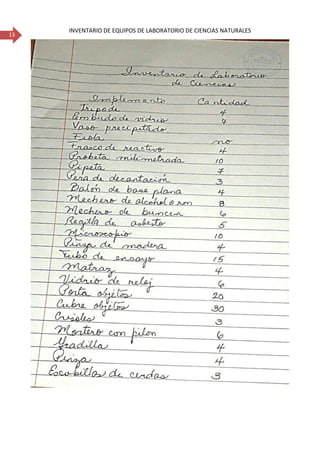 13
INVENTARIO DE EQUIPOS DE LABORATORIO DE CIENCIAS NATURALES
Inventario de Laboratorio
de Ciencias
Implemento Cantidad
Tripode 4
Embudo de vidrio
Vaso precipitado
Fiola no
Frasco de reactivo 4
Probeta milimetrada 10
Pipeta 7
Pera de decantación 3
Balón de base plana 4
Mechero de alcohol o ron 8
Mechero de buncen 6
Regilla de asbesto 5
Microscopio 10
Pinza de madera 4
Tubo de ensayo 15
Matraz 4
Vidrio de reloj 6
Porta objetos 20
Cubre objetos 30
Crisoles 3
Mortero con pilon 6
Gradilla 4
Pinza 4
Escobillas de cerdas 3